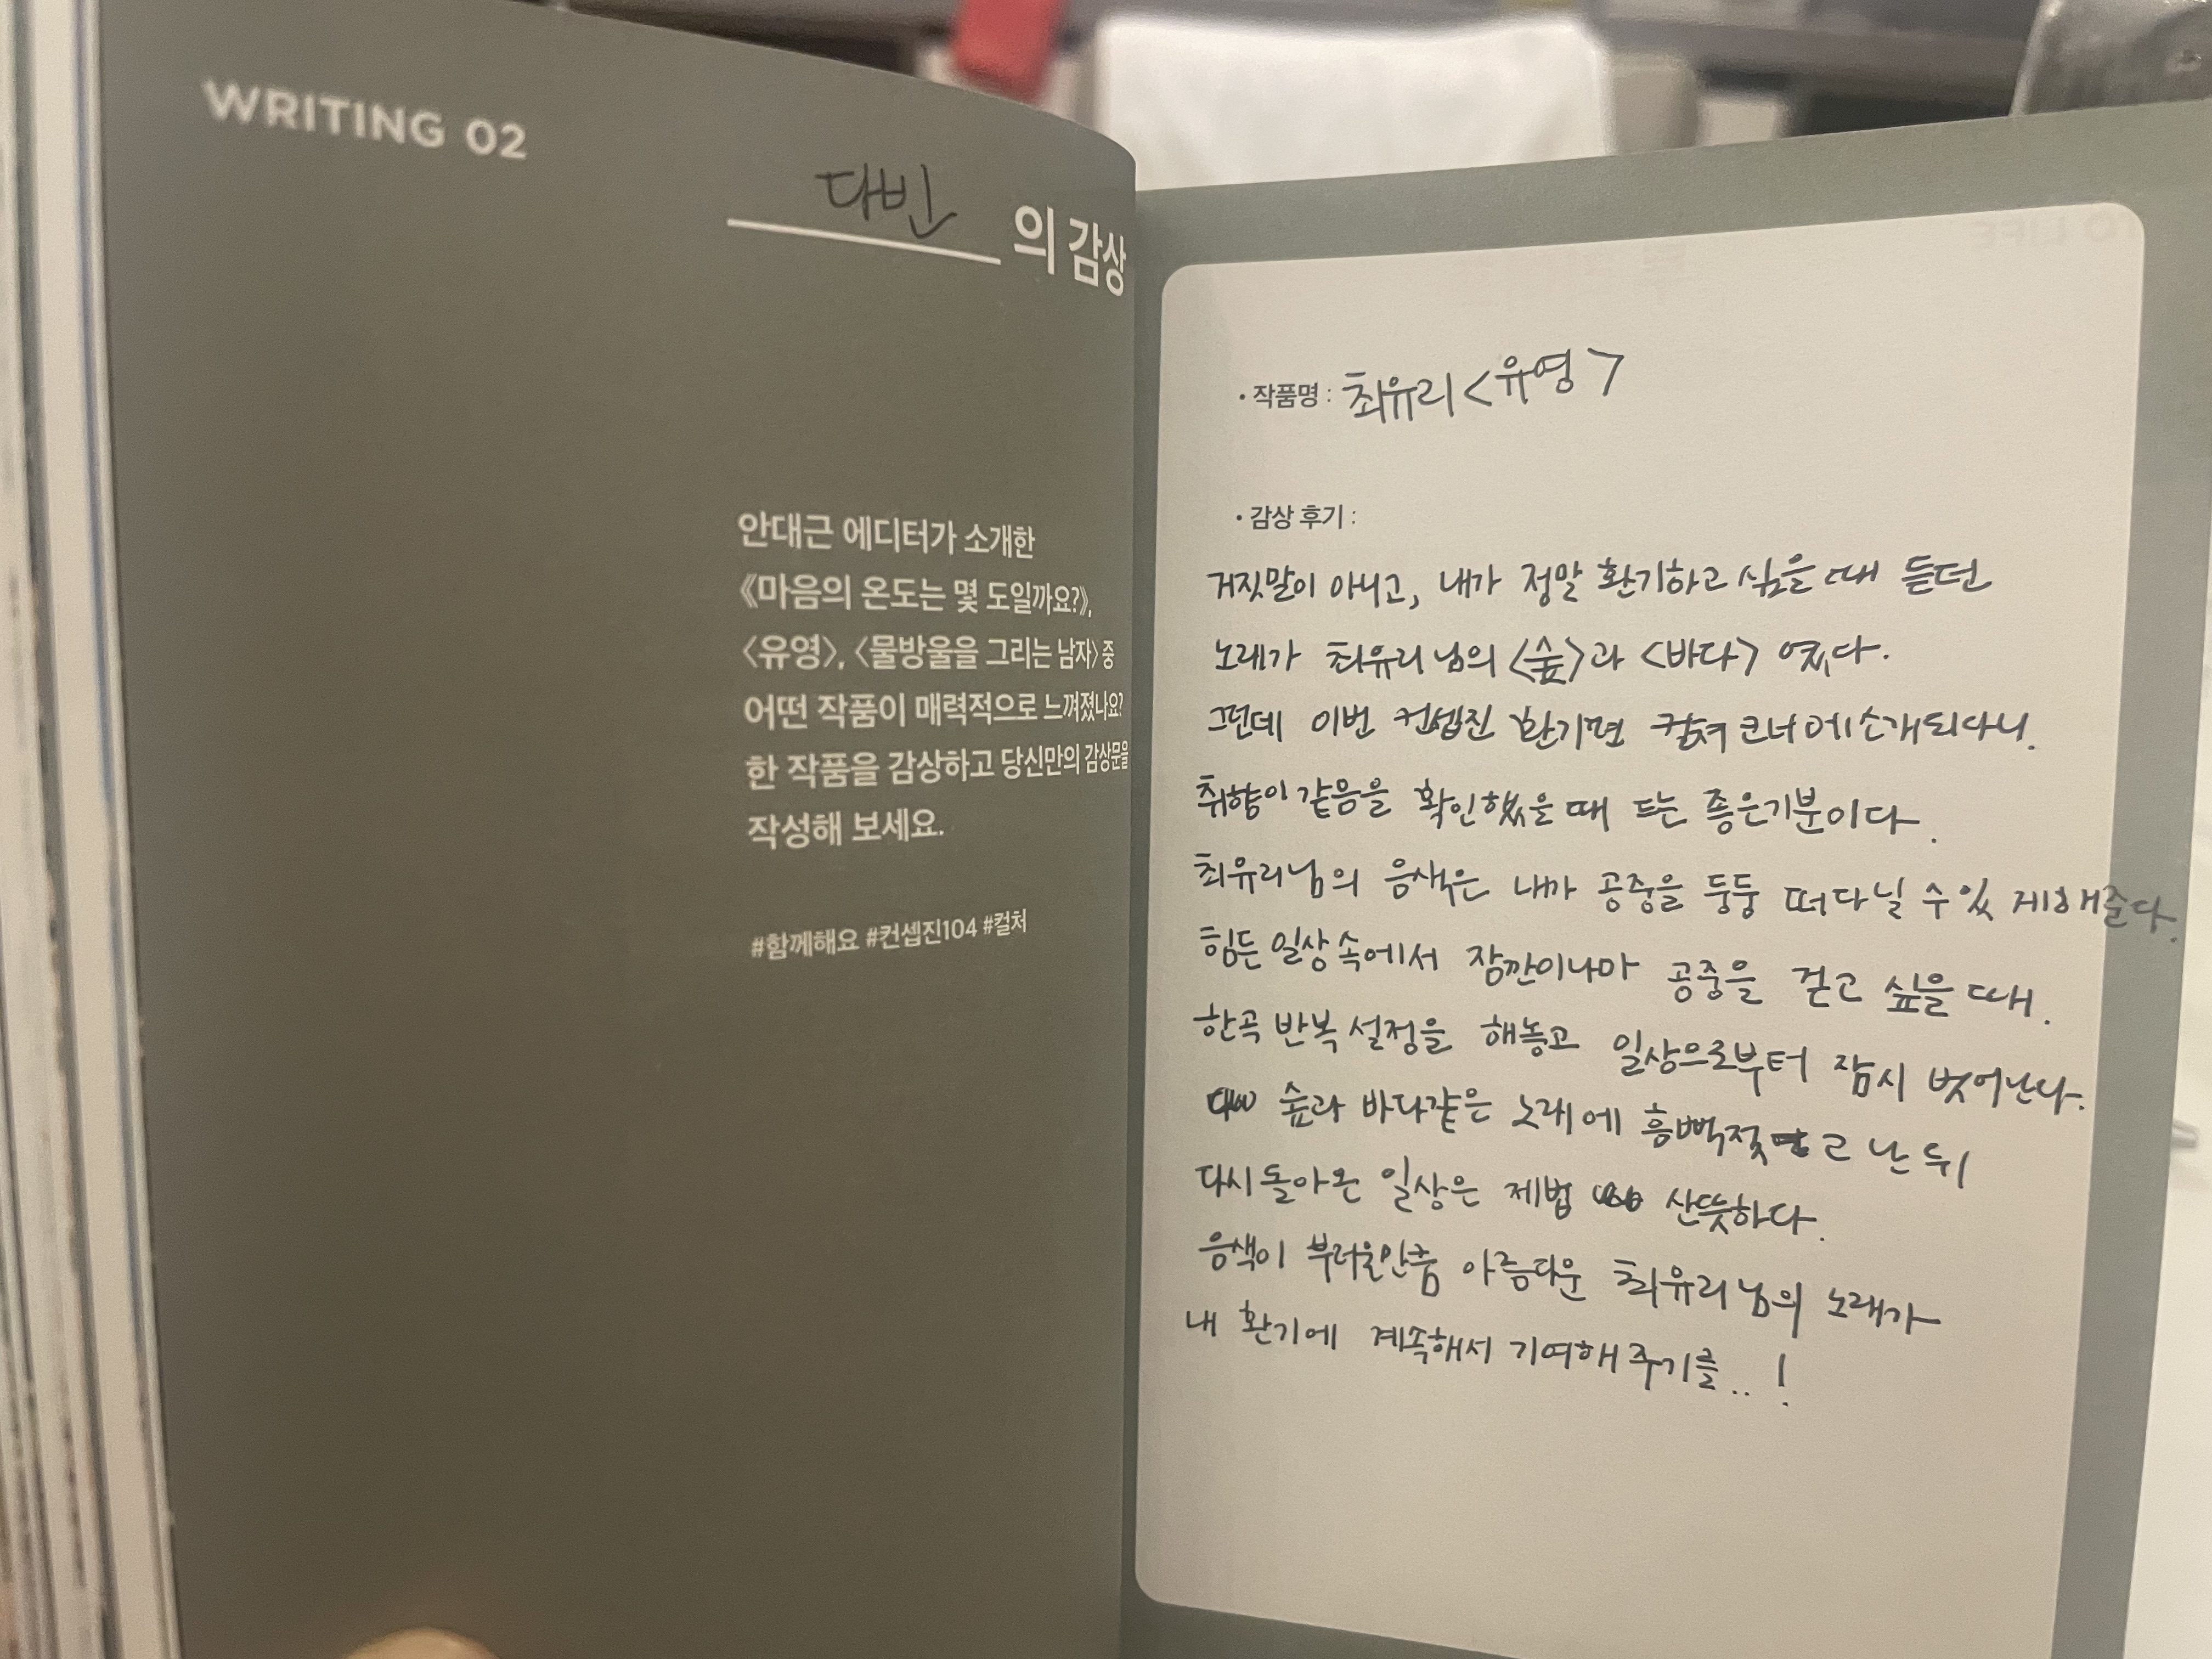 WRITING 02
다빈 의 감상
안대근 에디터가 소개한
《마음의 온도는 몇 도일까요?》,
〈유영〉, 〈물방울을 그리는 남자〉 중
어떤 작품이 매력적으로 느껴졌나요?
한 작품을 감상하고 당신만의 감상문을
작성해 보세요.
#함께해요 #컨셉진104 #컬처
• 작품명 : 최유리 <유영>
• 감상 후기 :
거짓말이 아니고, 내가 정말 환기하고 싶을 때 듣던
노래가 최유리님의 <숲>과 <바다> 였다.
그런데 이번 컨셉진 환기편 컬쳐 코너에 소개되다니.
취향이 같음을 확인했을 때 드는 좋은기분이다.
최유리님의 음색은 내가 공중을 둥둥 떠다닐 수 있게해준다.
힘든 일상 속에서 잠깐이나마 공중을 걷고 싶을 때.
한곡 반복 설정을 해놓고 일상으로부터 잠시 벗어난다.
숲과 바다같은 노래에 흠뻑젖고 난 뒤
다시 돌아온 일상은 제법 산뜻하다.
음색이 부러울만큼 아름다운 최유리님의 노래가
내 환기에 계속해서 기여해주기를..!